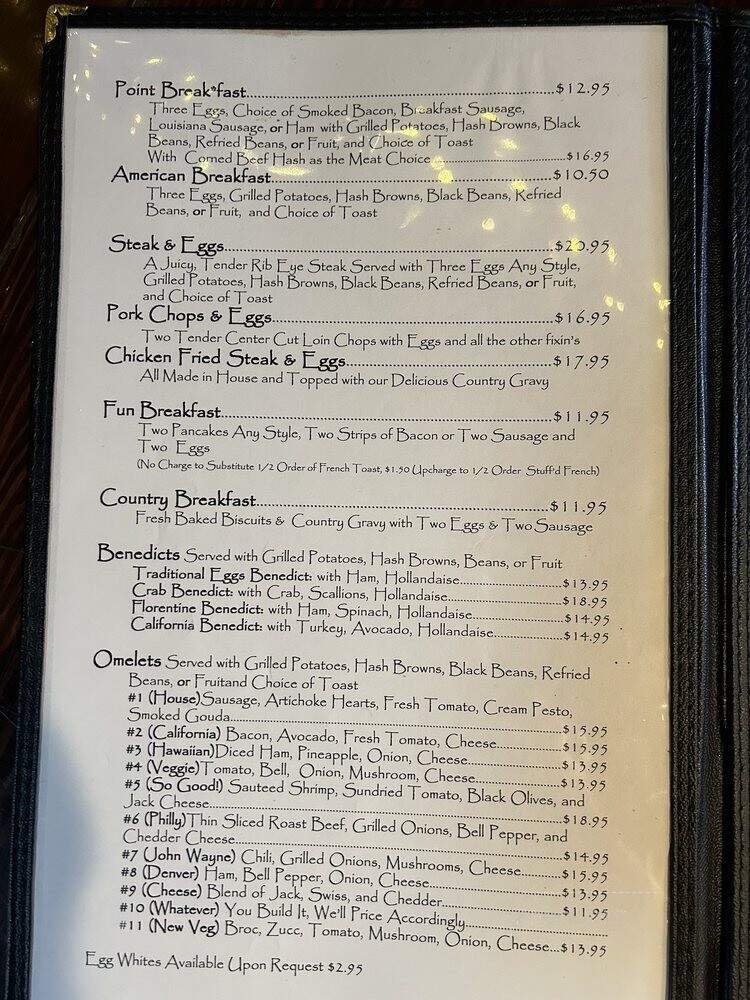 Point Break*fast...$12.95
Three Eggs, Choice of Smoked Bacon, Breakfast Sausage,
Louisiana Sausage, or Ham with Grilled Potatoes, Hash Browns, Black
Beans, Refried Beans, or Fruit, and Choice of Toast
With Corned Beef Hash as the Meat Choice...$16.95
American Breakfast...$10.50
Three Eggs, Grilled Potatoes, Hash Browns, Black Beans, Refried
Beans, or Fruit, and Choice of Toast
Steak & Eggs...$20.95
A Juicy, Tender Rib Eye Steak Served with Three Eggs Any Style,
Grilled Potatoes, Hash Browns, Black Beans, Refried Beans, or Fruit,
and Choice of Toast
Pork Chops & Eggs...$16.95
Two Tender Center Cut Loin Chops with Eggs and all the other fixin's
Chicken Fried Steak & Eggs...$17.95
All Made in House and Topped with our Delicious Country Gravy
Fun Breakfast...$11.95
Two Pancakes Any Style, Two Strips of Bacon or Two Sausage and
Two Eggs
(No Charge to Substitute 1/2 Order of French Toast, $1.50 Upcharge to 1/2 Order Stuff'd French)
Country Breakfast...$11.95
Fresh Baked Biscuits & Country Gravy with Two Eggs & Two Sausage
Benedicts Served with Grilled Potatoes, Hash Browns, Beans, or Fruit
Traditional Eggs Benedict: with Ham, Hollandaise...$13.95
Crab Benedict: with Crab, Scallions, Hollandaise...$18.95
Florentine Benedict: with Ham, Spinach, Hollandaise...$14.95
California Benedict: with Turkey, Avocado, Hollandaise...$14.95
Omelets Served with Grilled Potatoes, Hash Browns, Black Beans, Refried
Beans, or Fruitand Choice of Toast
#1 (House)Sausage, Artichoke Hearts, Fresh Tomato, Cream Pesto,
Smoked Gouda...$15.95
#2 (California) Bacon, Avocado, Fresh Tomato, Cheese...$15.95
#3 (Hawaiian)Diced Ham, Pineapple, Onion, Cheese...$13.95
#4 (Veggie)Tomato, Bell, Onion, Mushroom, Cheese...$13.95
#5 (So Good!) Sauteed Shrimp, Sundried Tomato, Black Olives, and
Jack Cheese...$18.95
#6 (Philly)Thin Sliced Roast Beef, Grilled Onions, Bell Pepper, and
Chedder Cheese...$14.95
#7 (John Wayne) Chili, Grilled Onions, Mushrooms, Cheese...$15.95
#8 (Denver) Ham, Bell Pepper, Onion, Cheese...$13.95
#9 (Cheese) Blend of Jack, Swiss, and Chedder...$11.95
#10 (Whatever) You Build It, We'll Price Accordingly...
#11 (New Veg) Broc, Zucc, Tomato, Mushroom, Onion, Cheese...$13.95
Egg Whites Available Upon Request $2.95